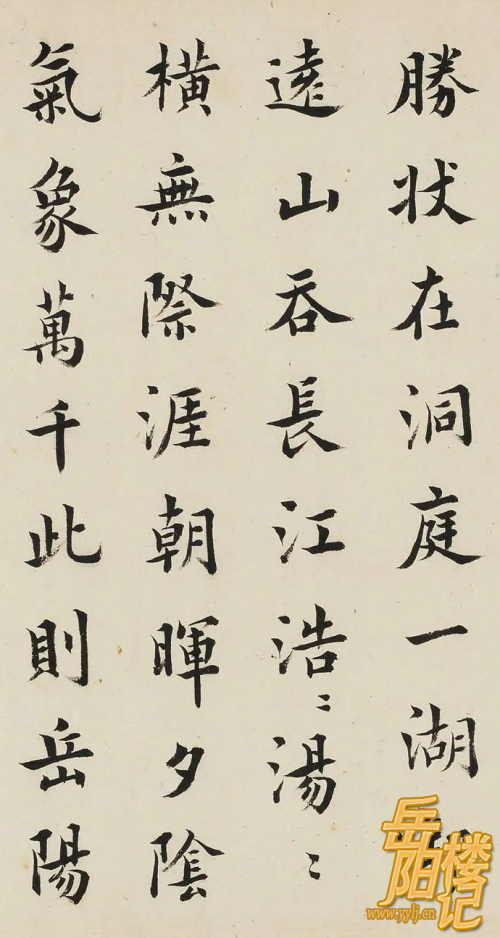 勝状在洞庭一湖
遠山吞長江浩〻湯〻
橫無際涯朝暉夕陰
氣象萬千此則岳陽
岳阳楼记
www.yylj.cn